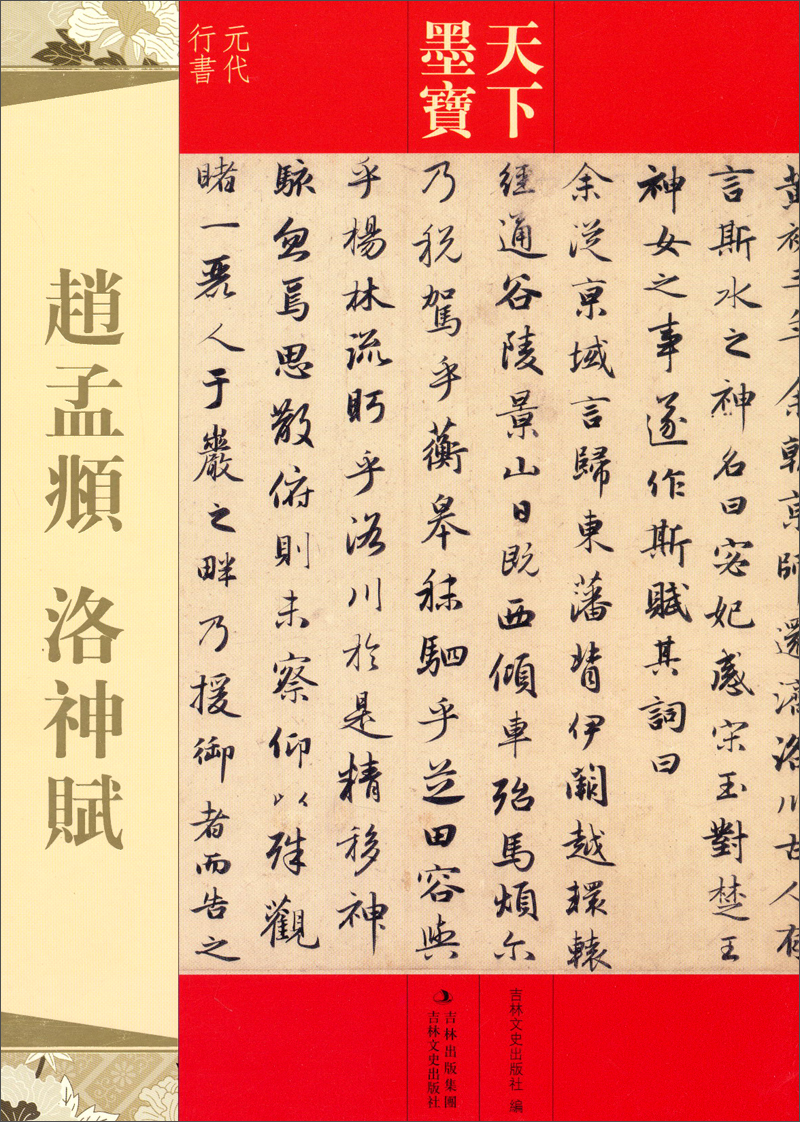 天下
墨寶
元代
行書
趙孟頫 洛神賦
黃初三年余朝京師還濟洛川古人有
言斯水之神名曰宓妃感宋玉對楚王
神女之事遂作斯賦其詞曰
余從京域言歸東藩背伊闕越轘轅
經通谷陵景山日既西傾車殆馬煩尔
乃稅駕乎蘅皋秣駟乎芝田容與
乎楊林流眄乎洛川於是精移神
駭忽焉思散俯則未察仰以殊觀
睹一麗人于巖之畔乃援御者而告之
吉林文史出版社 编
吉林出版集團
吉林文史出版社